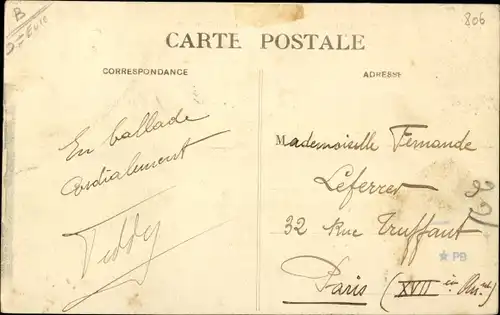 B
D Eure
806
CARTE POSTALE
CORRESPONDANCE
ADRESSE
En ballade
Cordialement
Teddy
Mademoiselle Fernande
Leferrer
32 Rue Truffaut
Paris (XVII
221
★ PB